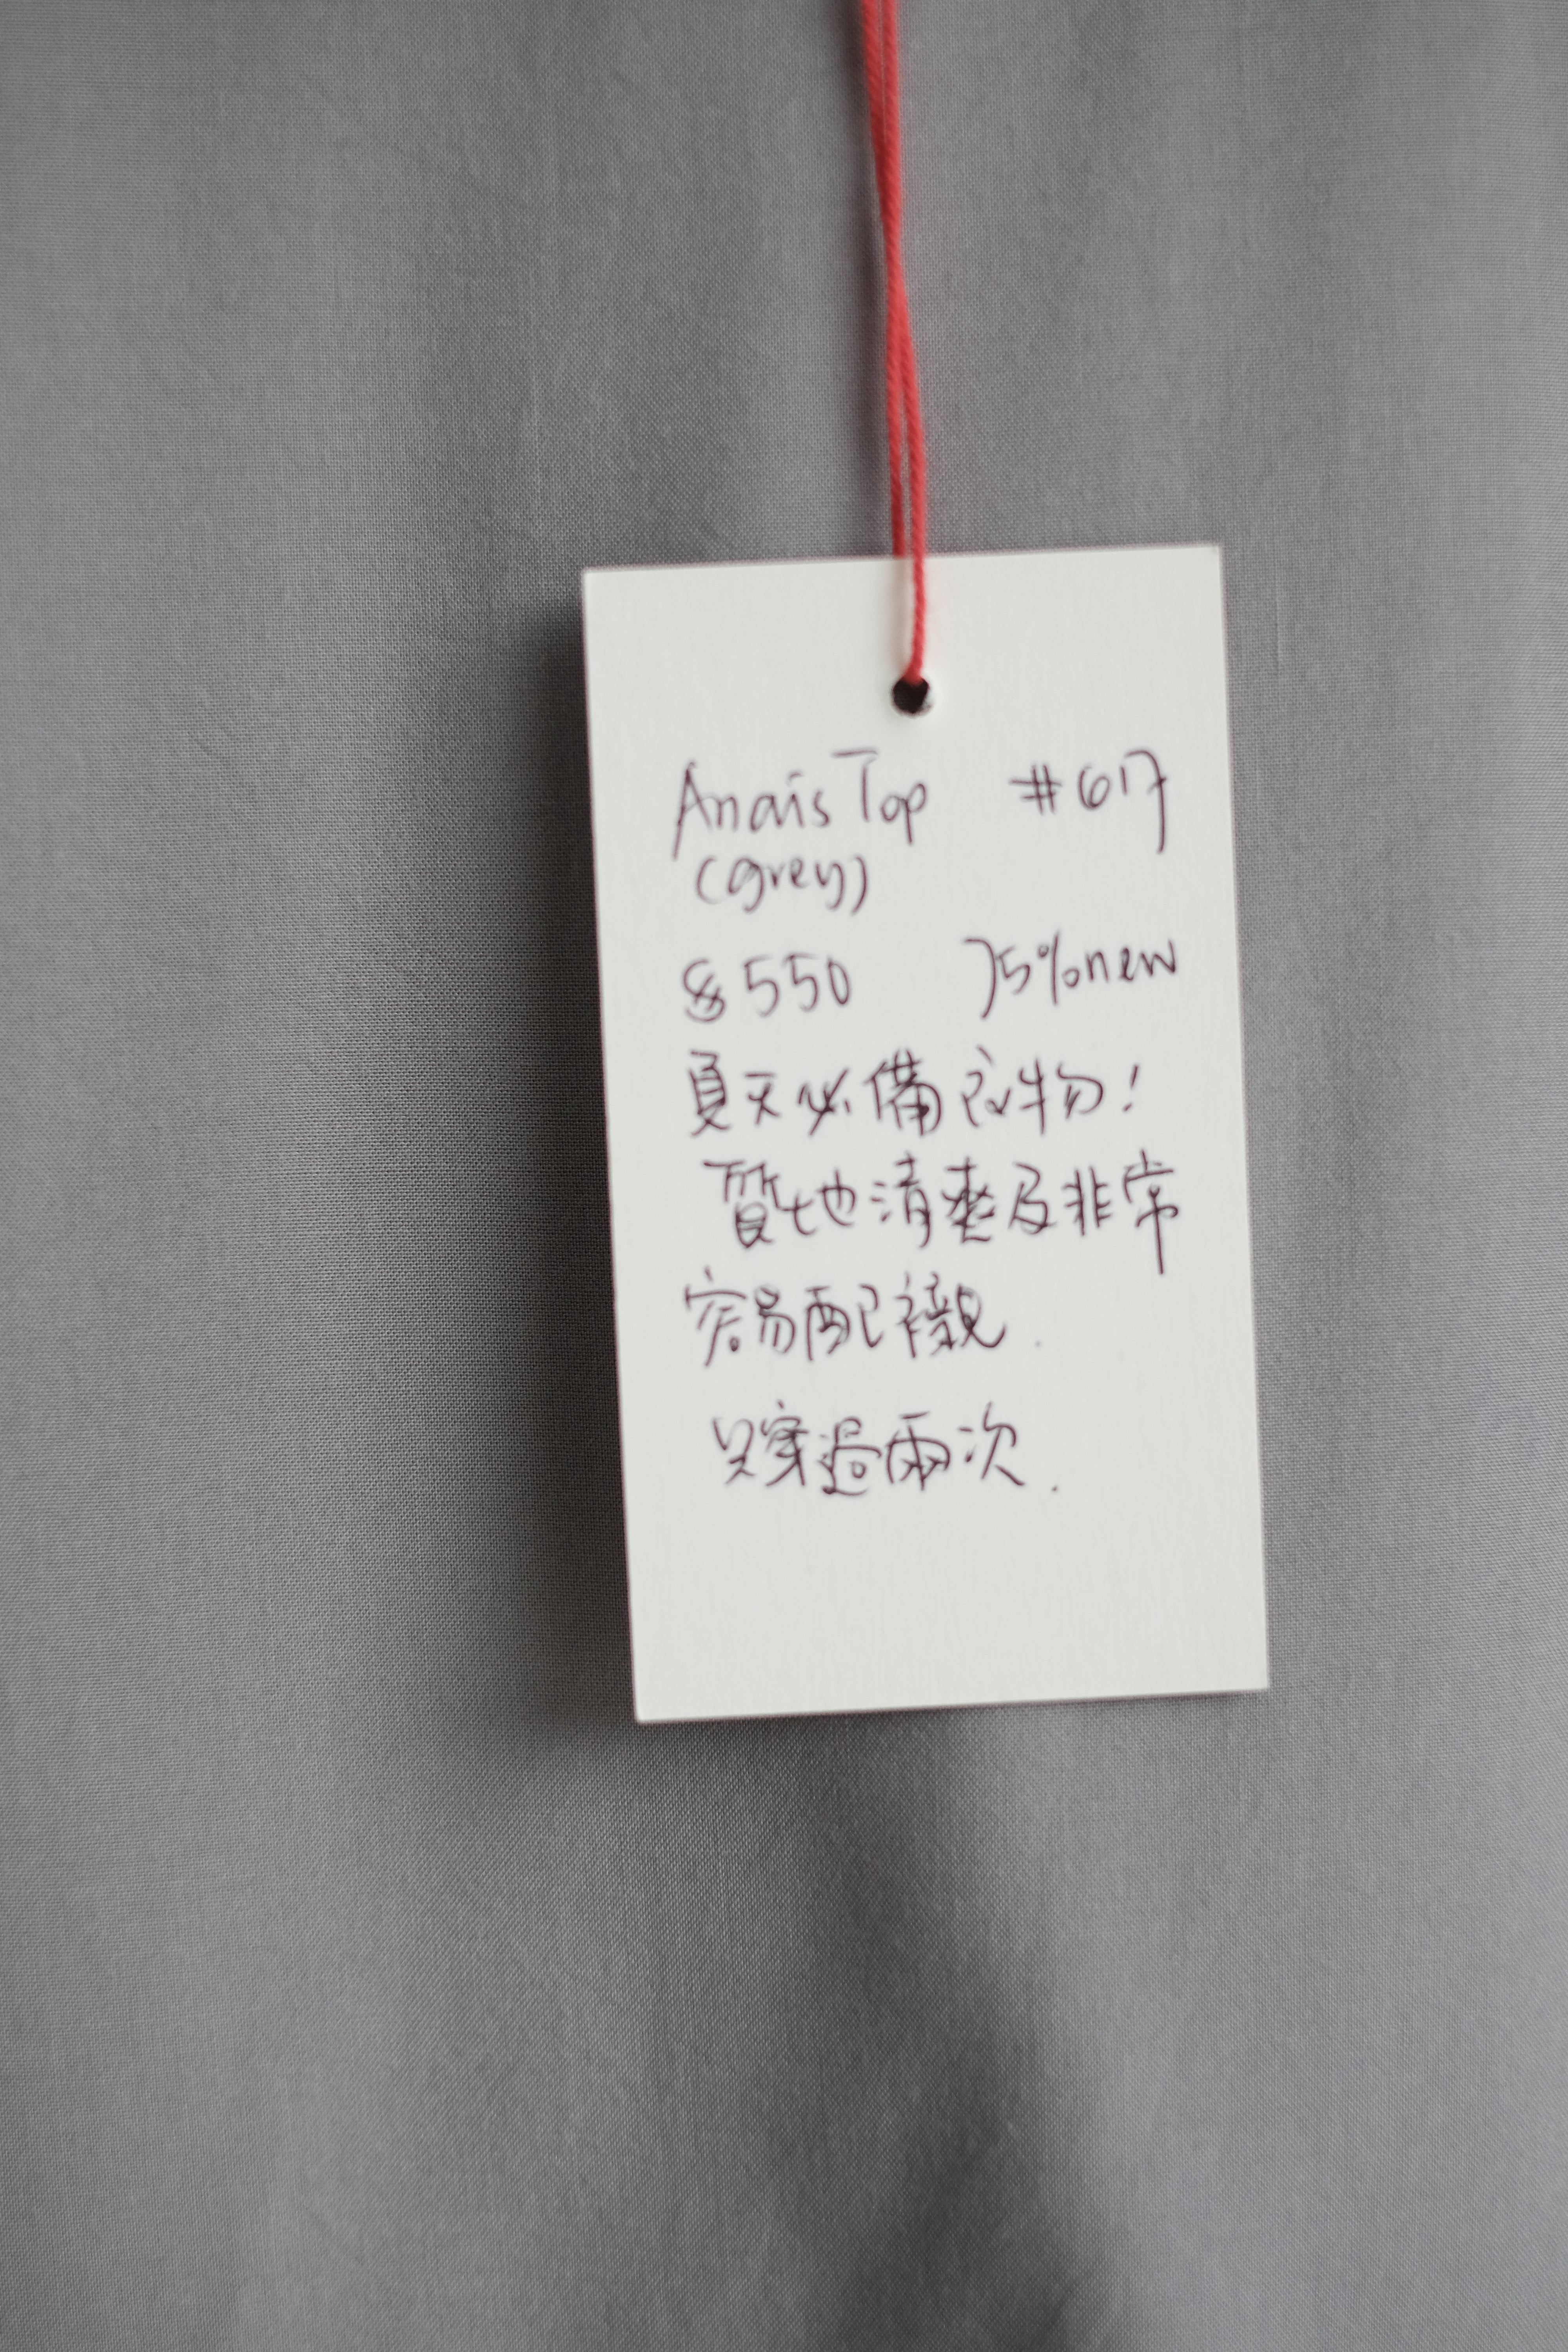 Anaïs Top #617
(grey)
$550 75%new
夏天必備衣物!
質地清爽及非常
容易配襯.
只穿過兩次.